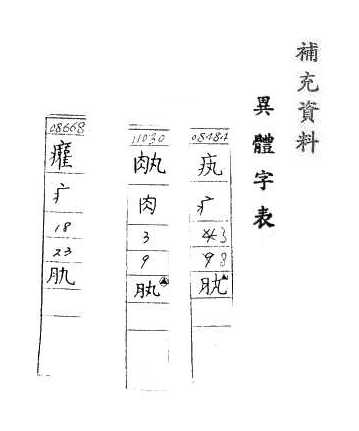 補充資料
異體字表
08484
疒
3
9 8
肒
11030
肉
3
9
肒
08668
疒
18
23
肒